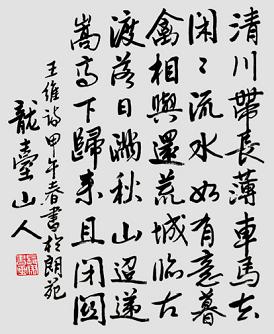 清川帶長薄車馬去
閑〻流水如有意暮
禽相與還荒城臨古
渡落日滿秋山迢遞
嵩高下歸來且閉關
王維詩甲午春書於朗苑
龍臺山人